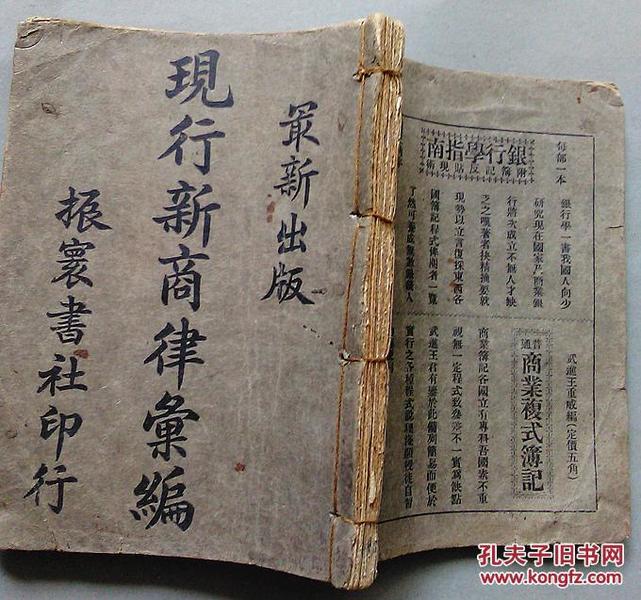 最新出版
現行新商律彙編
振寰書社印行
每部一本
銀行學指南
附簿記及貼現術
銀行學一書我國人向少
研究現在國家及商業銀
行將次成立不無人才缺
乏之嘆著者挾精擒要就
現勢以立言復採東西各
國簿記程式俾閱者一覽
了然可養成
武進王重威編(定價五角)
普通
商業複式簿記
商業簿記各國立有專科吾國素不重
視無一定程式致參差不一實為缺點
武進王君有鑒於此備列簡易而便於
實行之各種程式
孔夫子旧书网
www.kongfz.com